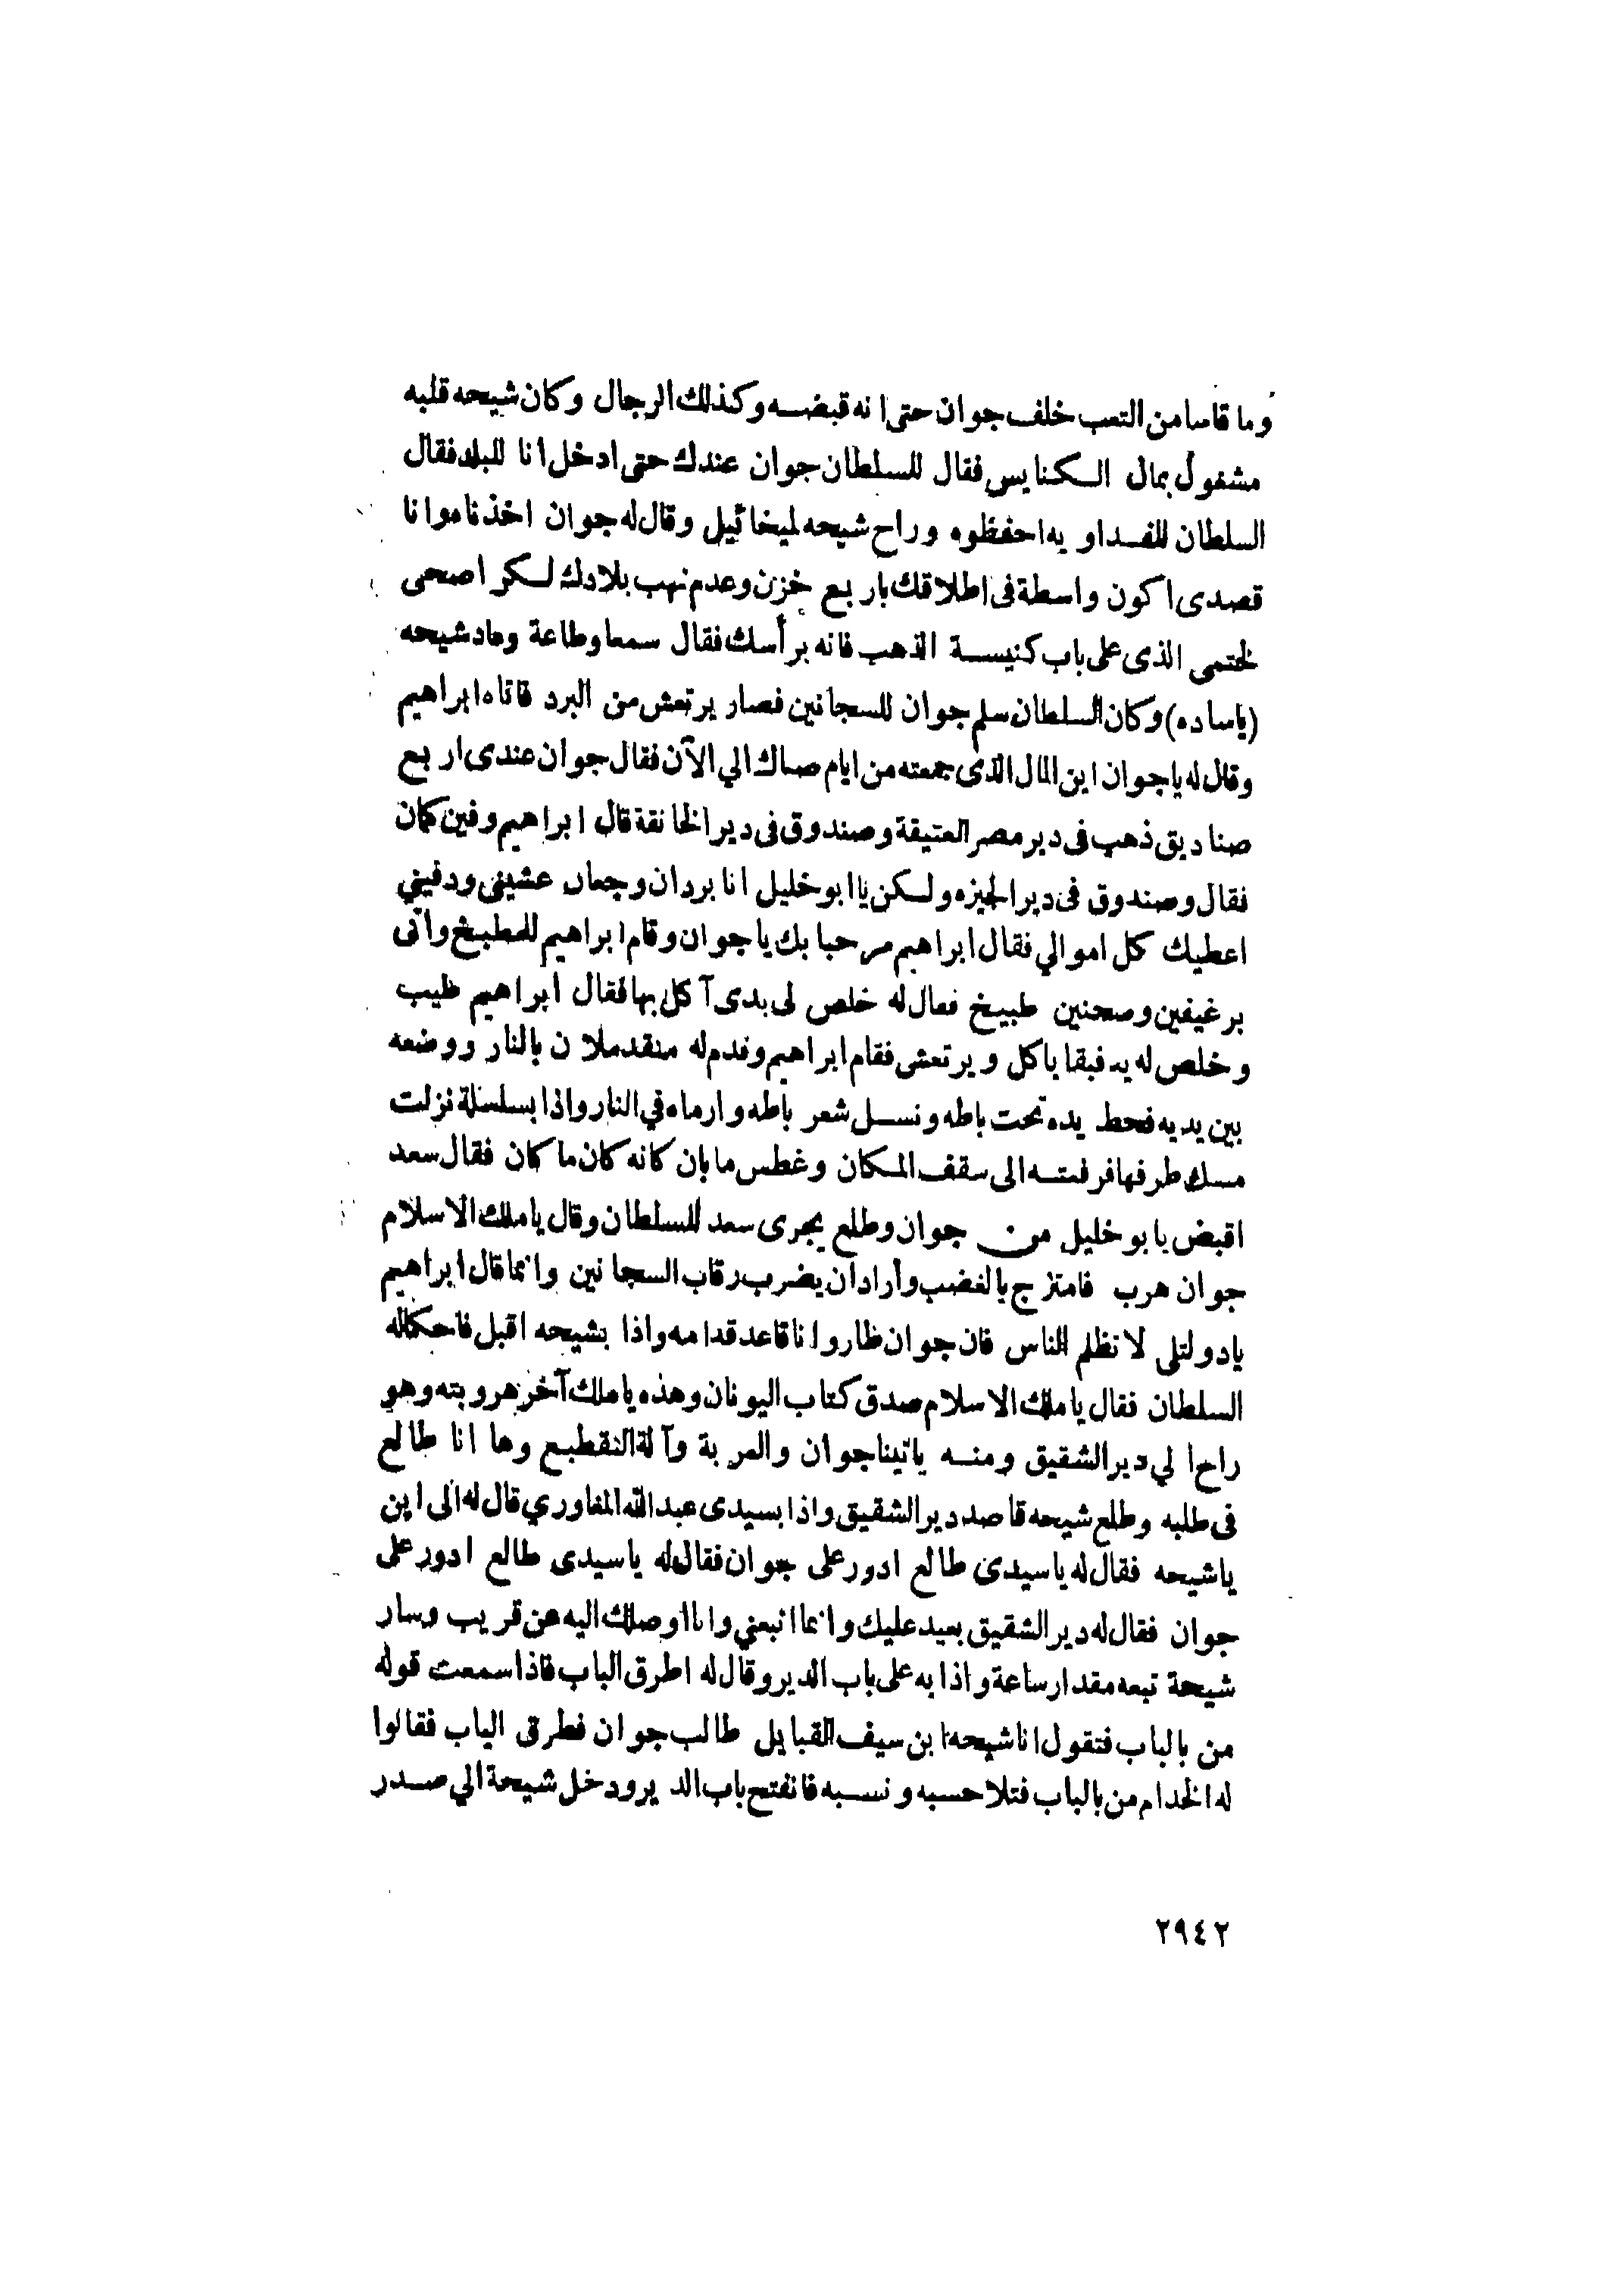 وما قاسا من التعب خلف جوان حتى انه قبضه وكذلك الرجال وكان شيحه قلبه
مشغول بمال الكنايس فقال للسلطان جوان عندك حتى ادخل انا للبلد فقال
السلطان للفداويه احفظوه وراح شيحه لميخائيل وقال له جوان اخذناه وانا
قصدى اكون واسطة فى اطلاقك باربع خزن وعدم نهب بلادك لكن اصحى
لختمى الذى على باب كنيسة الذهب فانه برأسك فقال سمعا وطاعة وعاد شيحه
(ياساده) وكان السلطان سلم جوان للسجانين فصار يرتعش من البرد فاتاه ابراهيم
وقال له ياجوان اين المال الذى جمعته من ايام صباك الي الآن فقال جوان عندى اربع
صناديق ذهب فى دير مصر العتيقة وصندوق فى دير الخانقة قال ابراهيم وفين كمان
فقال وصندوق فى دير الجيزه ولكن يا ابو خليل انا بردان وجعان عشينى ودفيني
اعطيك كل اموالي فقال ابراهيم مرحبا بك ياجوان وقام ابراهيم للمطبخ وأتى
برغيفين وصحنين طبيخ فقال له خلص لى يدى آكل بها فقال ابراهيم طيب
وخلص له يد فبقا ياكل ويرتعش فقام ابراهيم وقدم له منقد ملان بالنار ووضعه
بين يديه فحط يده تحت باطه ونسل شعر باطه وارماه في النار واذا بسلسلة نزلت
مسك طرفها فرفعته الى سقف المكان وغطس ما بان كانه كان ما كان فقال سعد
اقبض يابو خليل من جوان وطلع يجرى سعد للسلطان وقال ياملك الاسلام
جوان هرب فامتزج بالغضب وأراد أن يضرب رقاب السجانين وانما قال ابراهيم
يادولتلى لا تظلم الناس فان جوان طار وانا قاعد قدامه واذا بشيحه اقبل فاحكاله
السلطان فقال ياملك الاسلام صدق كتاب اليونان وهذه ياملك آخر هروبته وهو
راح الي دير الشقيق ومنه ياتينا جوان والعربة وآلة التقطيع وها انا طالع
فى طلبه وطلع شيحه قاصد دير الشقيق واذا بسيدى عبد الله المغاوري قال له الى اين
ياشيحه فقال له ياسيدى طالع ادور على جوان فقال له ياسيدى طالع ادور على
جوان فقال له دير الشقيق بعيد عليك وانما اتبعني وانا اوصلك اليه عن قريب وسار
شيحة تبعه مقدار ساعة واذا به على باب الدير وقال له اطرق الباب فاذا سمعت قوله
من بالباب فتقول انا شيحه ابن سيف القبايل طالب جوان فطرق الباب فقالوا
له الخدام من بالباب فتلا حسبه ونسبه فانفتح باب الدير ودخل شيحة الي صدر
٢٩٤٢